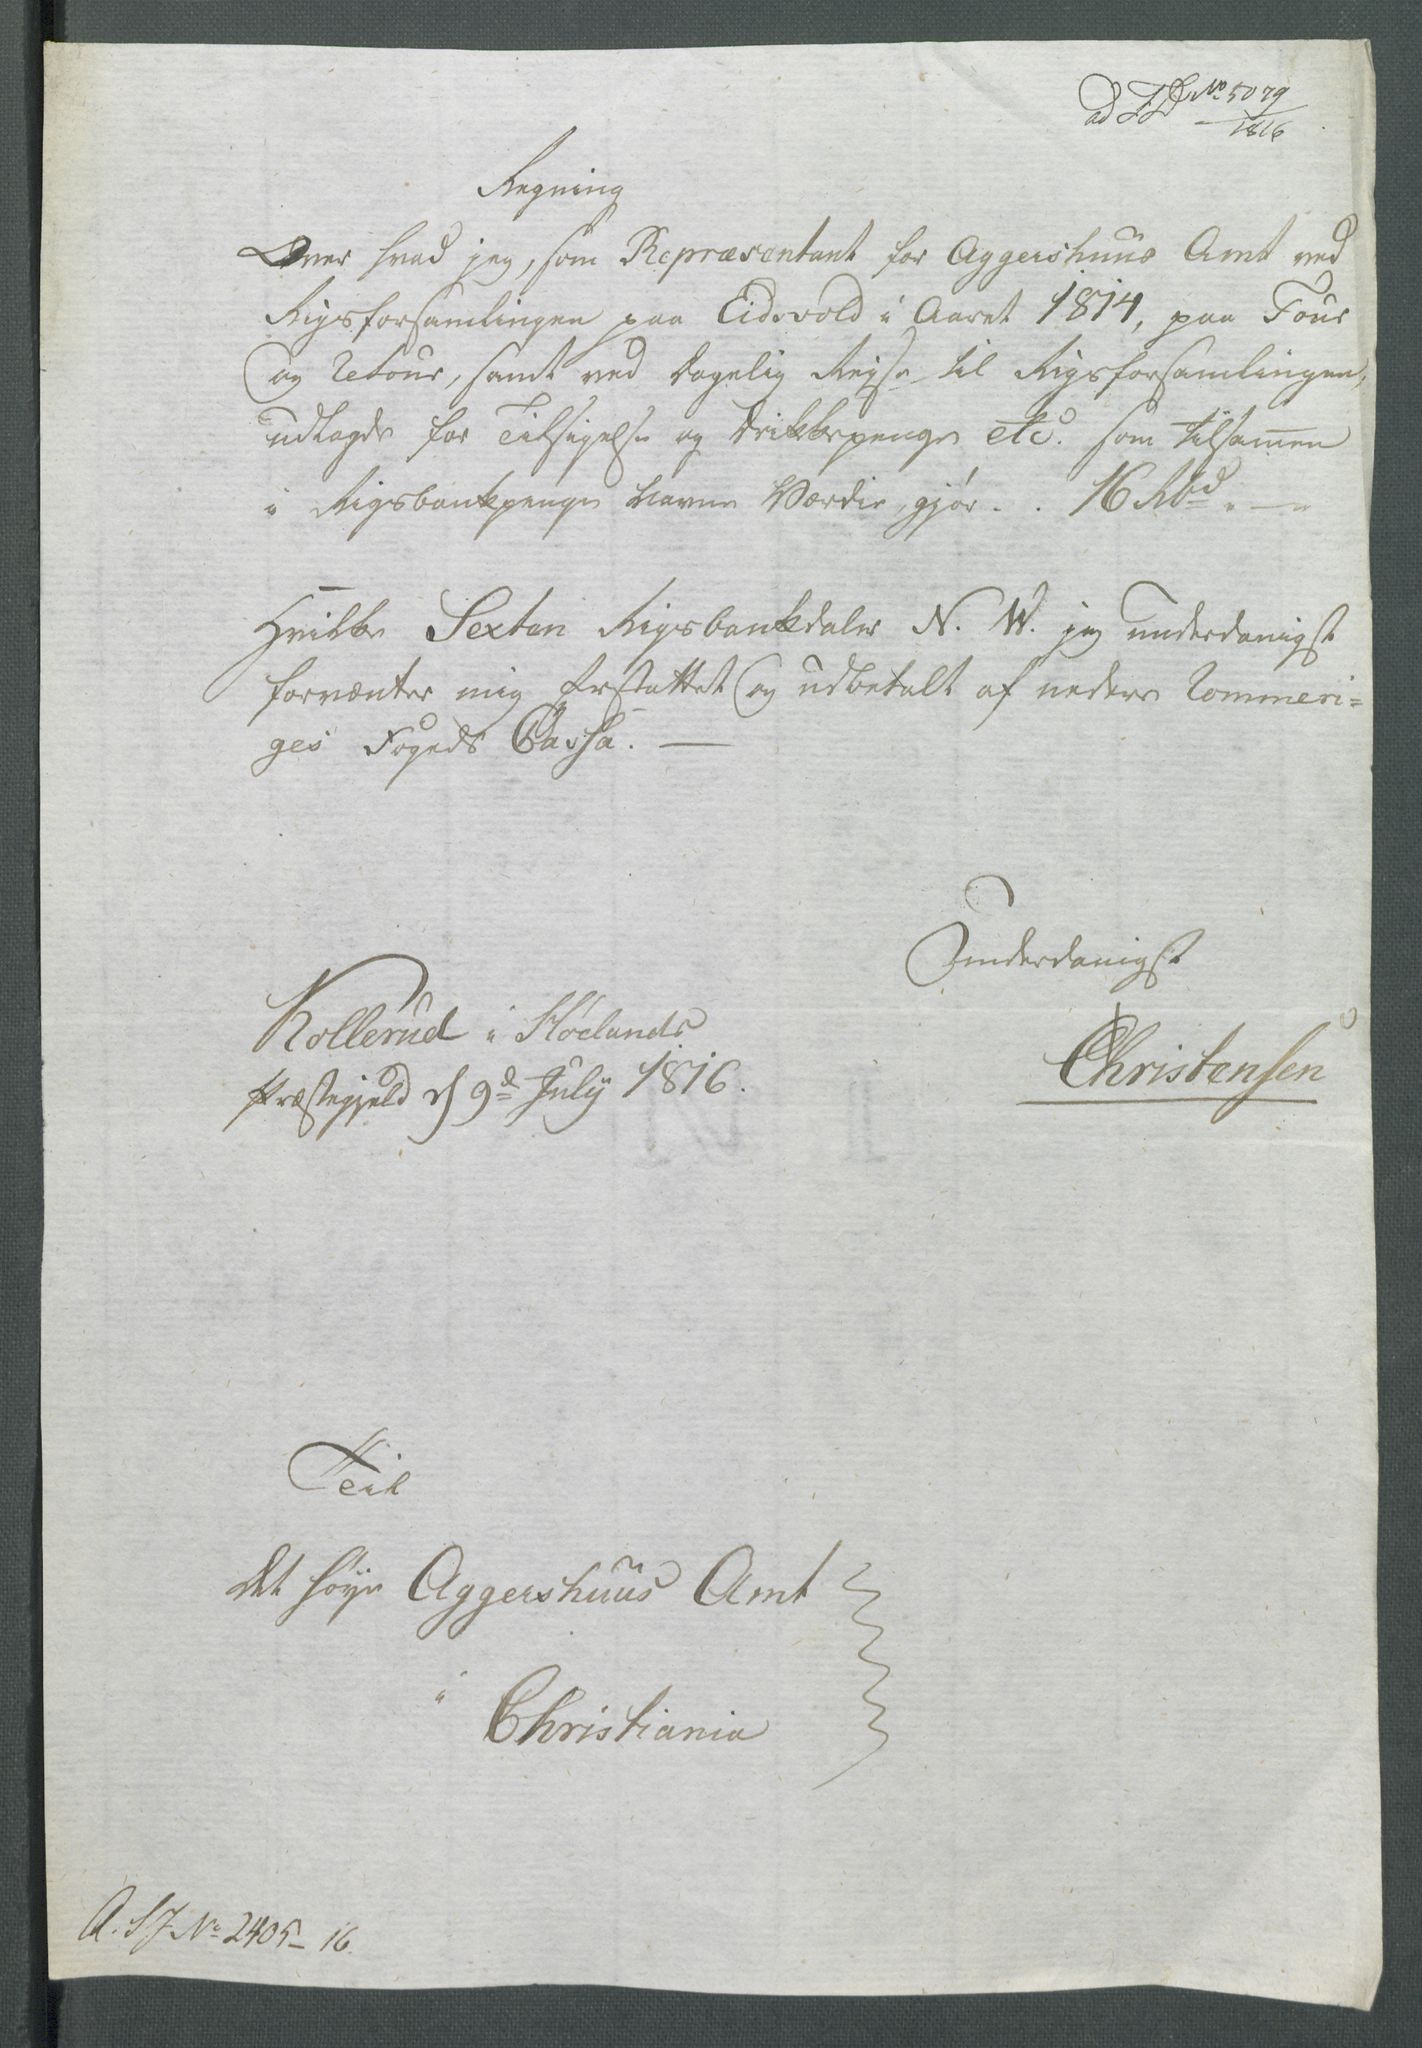 ad No 5079
1816
Regning
Over hvad jeg, som Repræsentant for Aggershuus Amt ved
Rigsforsamlingen paa Eidsvold i Aaret 1814, paa Tour
og Retour, samt ved dagelig Reise til Rigsforsamlingen,
udlagde for Tilsigelse og Drikkepenge etc. som tilsamen
i Rigsbankpenge Navne Værdie, gjør . . 16 Rbd " — "
Hvilke Sexten Rigsbankdaler N. W. jeg underdanigst
forventer mig Erstattet og udbetalt af nedere Rommeri=
ges Fogeds Cassa. —
Underdanigst
Kollerud i Hølands
Præstegjeld d 9de July 1816.
Christensen
Teil
Det høye Aggershuus Amt
i
Christiania
A. S J. No 2405 – 16.